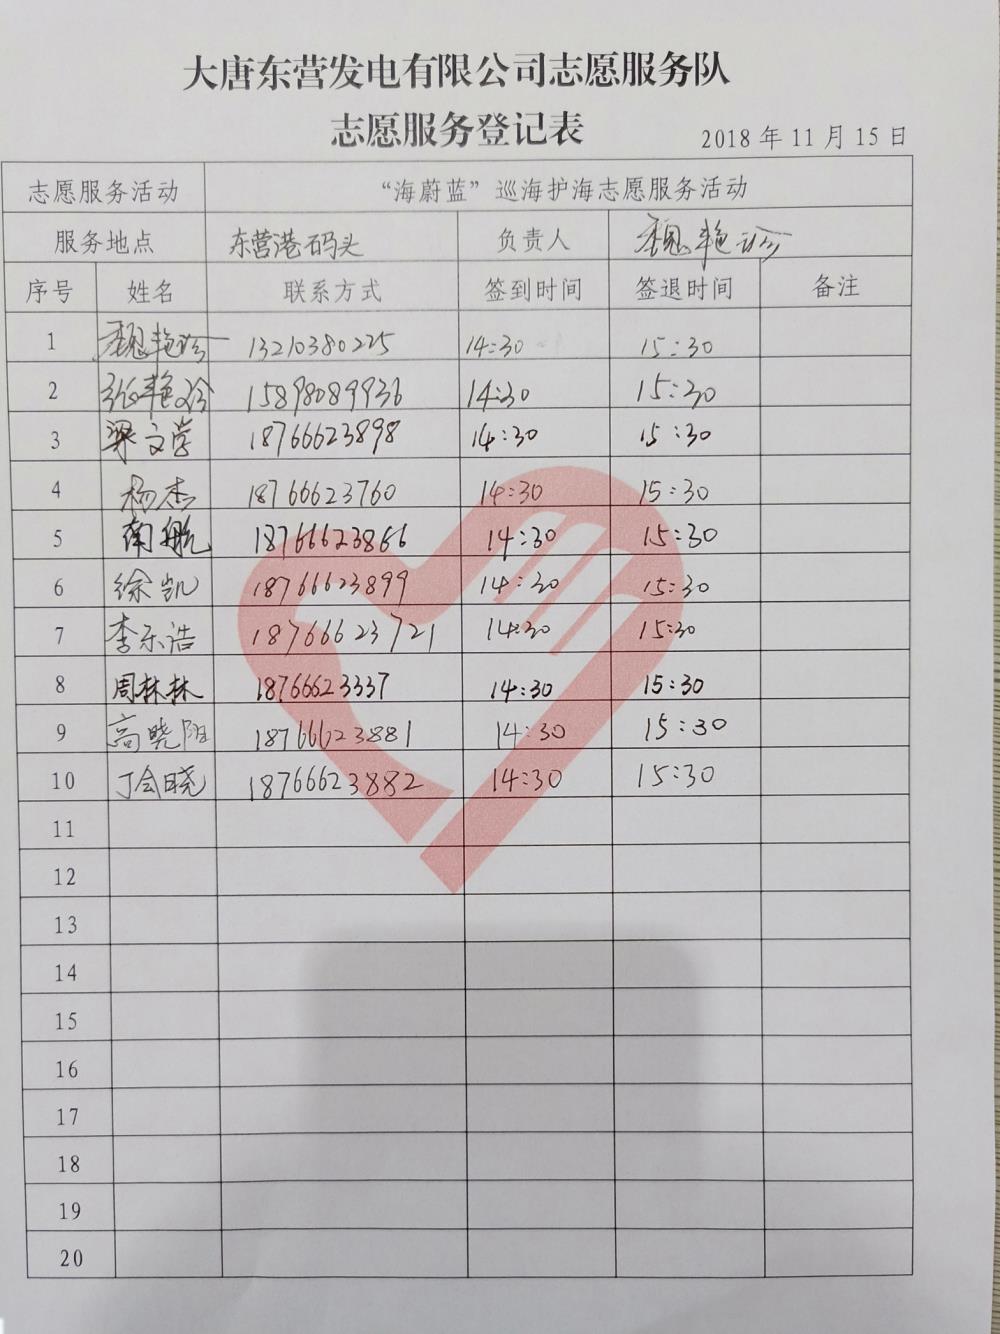 大唐东营发电有限公司志愿服务队
志愿服务登记表
2018 年 11 月 15 日
志愿服务活动 “海蔚蓝”巡海护海志愿服务活动
服务地点 东营港码头 负责人 魏艳珍
序号 姓名 联系方式 签到时间 签退时间 备注
1 魏艳珍 13210380225 14:30 15:30
2 张艳玲 15898089936 14:30 15:30
3 梁文学 18766623898 14:30 15:30
4 杨杰 18766623760 14:30 15:30
5 南航 18766623866 14:30 15:30
6 徐凯 18766623899 14:30 15:30
7 李乐浩 18766623721 14:30 15:30
8 周林林 18766623337 14:30 15:30
9 高晓阳 18766623881 14:30 15:30
10 丁会晓 18766623882 14:30 15:30
11
12
13
14
15
16
17
18
19
20